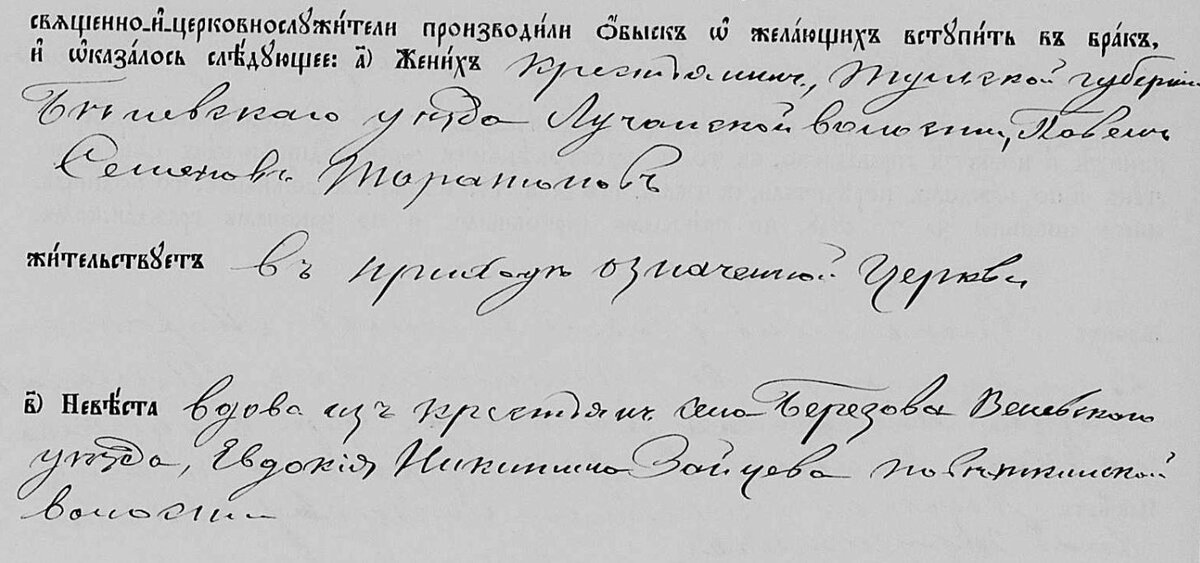 свѧщенно-и҆-церковнослꙋжи́тели производи́ли ѻ҆́быскъ ѡ҆ жела́ющихъ встꙋпи́ть въ бра́къ,
и҆ ѡ҆каза́лось слѣ́дꙋющее: а҃) Жени́хъ крестьянинъ, Тульской губерніи
Бѣлевскаго уѣзда Лучанской волости, Павелъ
Семеновъ Таратоновъ
жи́тельствꙋетъ въ приходѣ означенной Церкви
в҃) Невѣ́ста вдова изъ крестьянъ села Березова Веневского
уѣзда, Евдокія Никитина Зайцева
волости